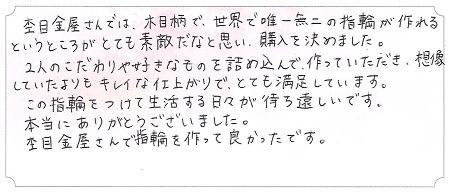 杢目金屋さんでは、木目柄で、世界で唯一無二の指輪が作れる
というところがとても素敵だなと思い、購入を決めました。
2人のこだわりや好きなものを詰め込んで、作っていただき、想像
していたよりもキレイな仕上がりで、とても満足しています。
この指輪をつけて生活する日々が待ち遠しいです。
本当にありがとうございました。
杢目金屋さんで指輪を作って良かったです。